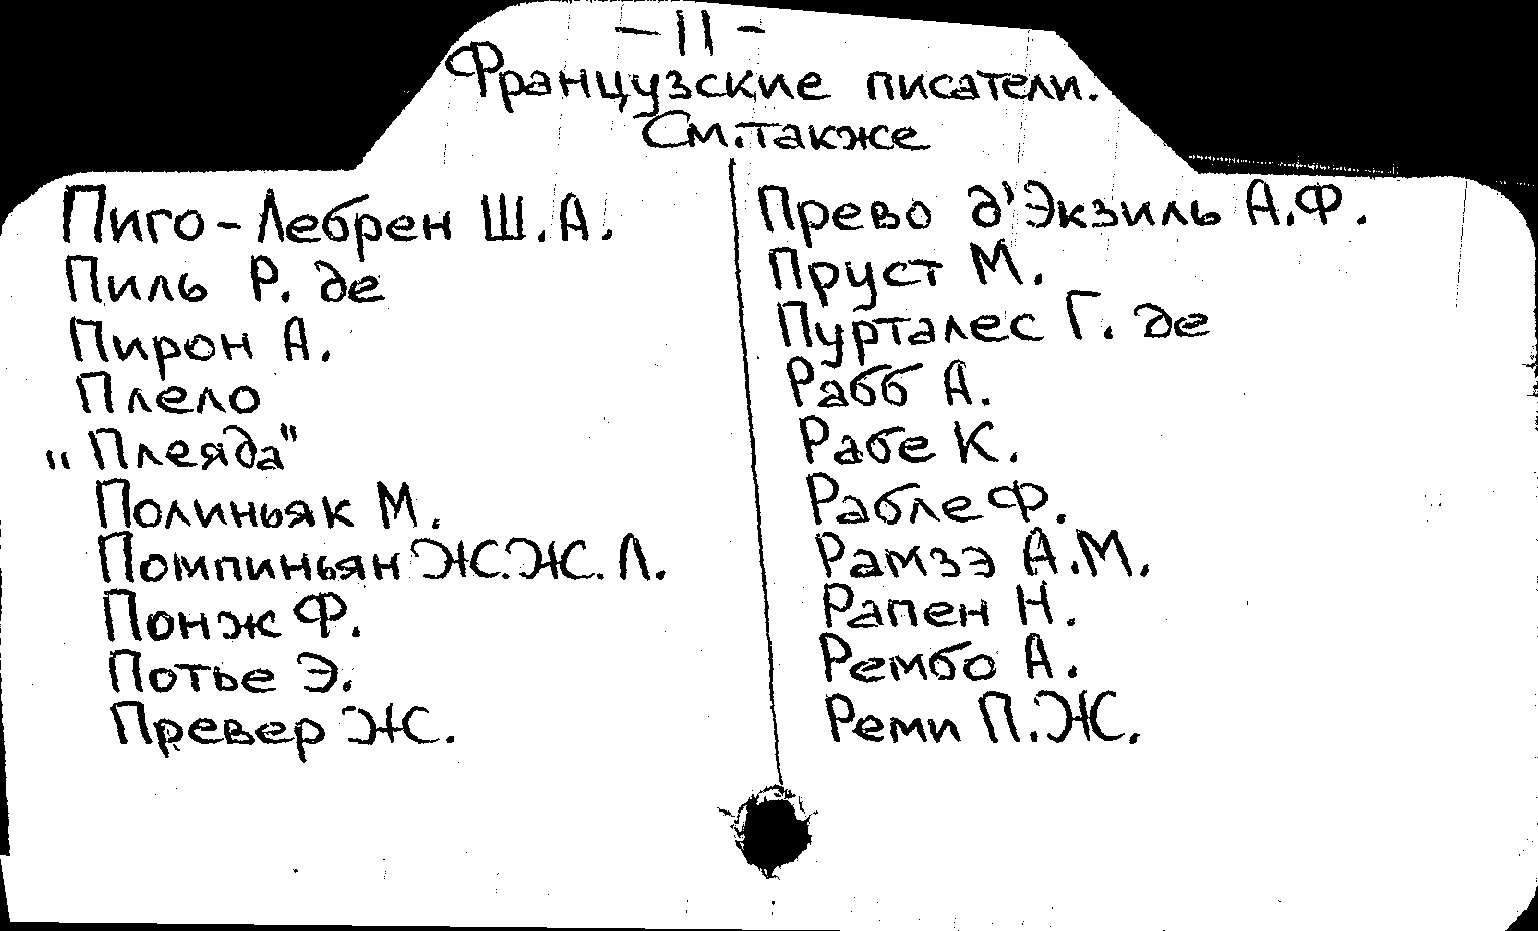 – 11 –
Французские писатели.
См. также
Пиго-Лебрен Ш.А.
Пиль Р. де
Пирон А.
Плело
„Плеяда"
Полиньяк М.
Помпиньян Ж.Ж. Л.
Понж Ф.
Потье Э.
Превер Ж.
Прево д'Экзиль А.Ф.
Пруст М.
Пурталес Г. де
Рабб А.
Рабе К.
Рабле Ф.
Рамзэ А.М.
Рапен Н.
Рембо А.
Реми П.Ж.